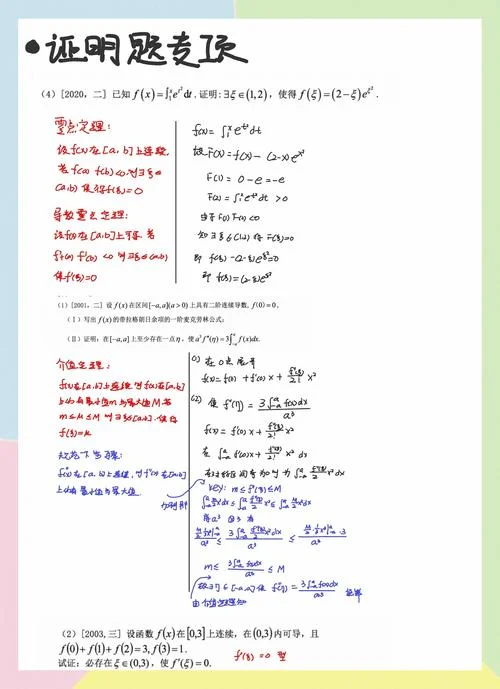 •证明题专项
(4) [2020，二] 已知 f(x)=∫₁ˣ e^{t²}dt，证明：∃ξ∈(1,2)，使得 f(ξ)=(2−ξ)e^{ξ²}．
零点定理：
设f(x)在[a,b]上连续，
若f(a)·f(b)<0 则∃ξ∈
(a,b) 使得f(ξ)=0
导数零点定理：
设f(x)在[a,b]上可导，若
f'₊(a)·f'₋(b)<0 则∃ξ∈(a,b)
使f'(ξ)=0
f(x)=∫₁ˣ e^{t²}dt
设F(x)=f(x)−(2−x)e^{x²}
F(1)=0−e=−e
F(2)=∫₁² e^{t²}dt >0
由于F(1)·F(2)<0
知∃ξ∈(1,2)使F(ξ)=0
即f(ξ)−(2−ξ)e^{ξ²}=0
即f(ξ)=(2−ξ)e^{ξ²}
(1) [2001，二] 设 f(x)在区间[−a,a](a>0)上具有二阶连续导数，f(0)=0，
(Ⅰ) 写出 f(x)的带拉格朗日余项的一阶麦克劳林公式；
(Ⅱ) 证明：在[−a,a]上至少存在一点η，使a³f''(η)=3∫₋ₐᵃ f(x)dx．
介值定理：
f(x)在[a,b]上连续，则f(x)在[a,b]
上必有最小值m与最大值M，若
m≤μ≤M 则∃ξ∈[a,b]，使得
f(ξ)=μ
f''(x)在[a,b]上连续，则f''(x)在[a,b]
上必有最小值与最大值
(1) 在0点展开
f(x)=f(0)+f'(0)x+f''(ξ)/2! x²
(2) 使f''(η)=3∫₋ₐᵃf(x)dx/a³
f(x)=f'(0)x+f''(ξ)/2! x²
在∫₋ₐᵃ f'(0)x+f''(ξ)/2! x² dx
key：m≤f''(ξ)≤M
∫₋ₐᵃ m/2 x²dx≤∫₋ₐᵃ f''(ξ)/2 x²dx≤∫₋ₐᵃ M/2 x²dx
m≤3∫₋ₐᵃf(x)dx/a³≤M
故∃η∈[−a,a]使f''(η)=3∫₋ₐᵃf(x)dx/a³
由介值定理知
(2) [2003,三] 设函数 f(x)在[0,3]上连续，在(0,3)内可导，且
f(0)+f(1)+f(2)=3, f(3)=1．
f'(ξ)=0 型
试证：必存在ξ∈(0,3)，使f'(ξ)=0.